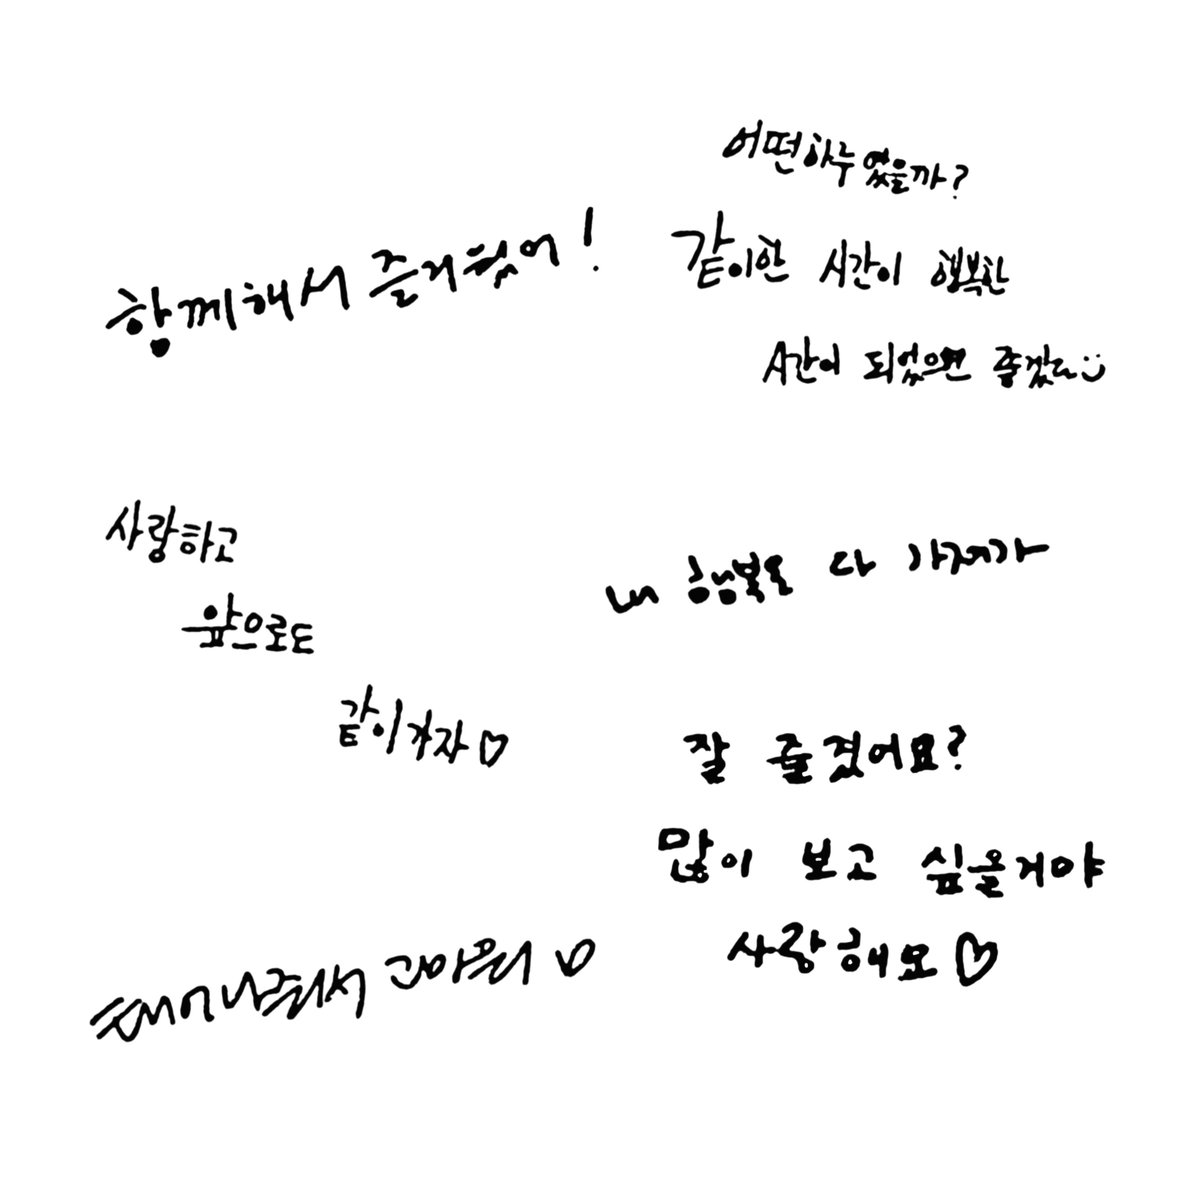 함께해서 즐거웠어!
어떤하루였을까?
같이한 시간이 행복한
시간이 되었으면 좋겠다:)
사랑하고
앞으로도
같이가자♡
내 행복을 다 가져가
잘 즐겼어요?
많이 보고 싶을거야
사랑해요♡
태어나줘서 고마워♡